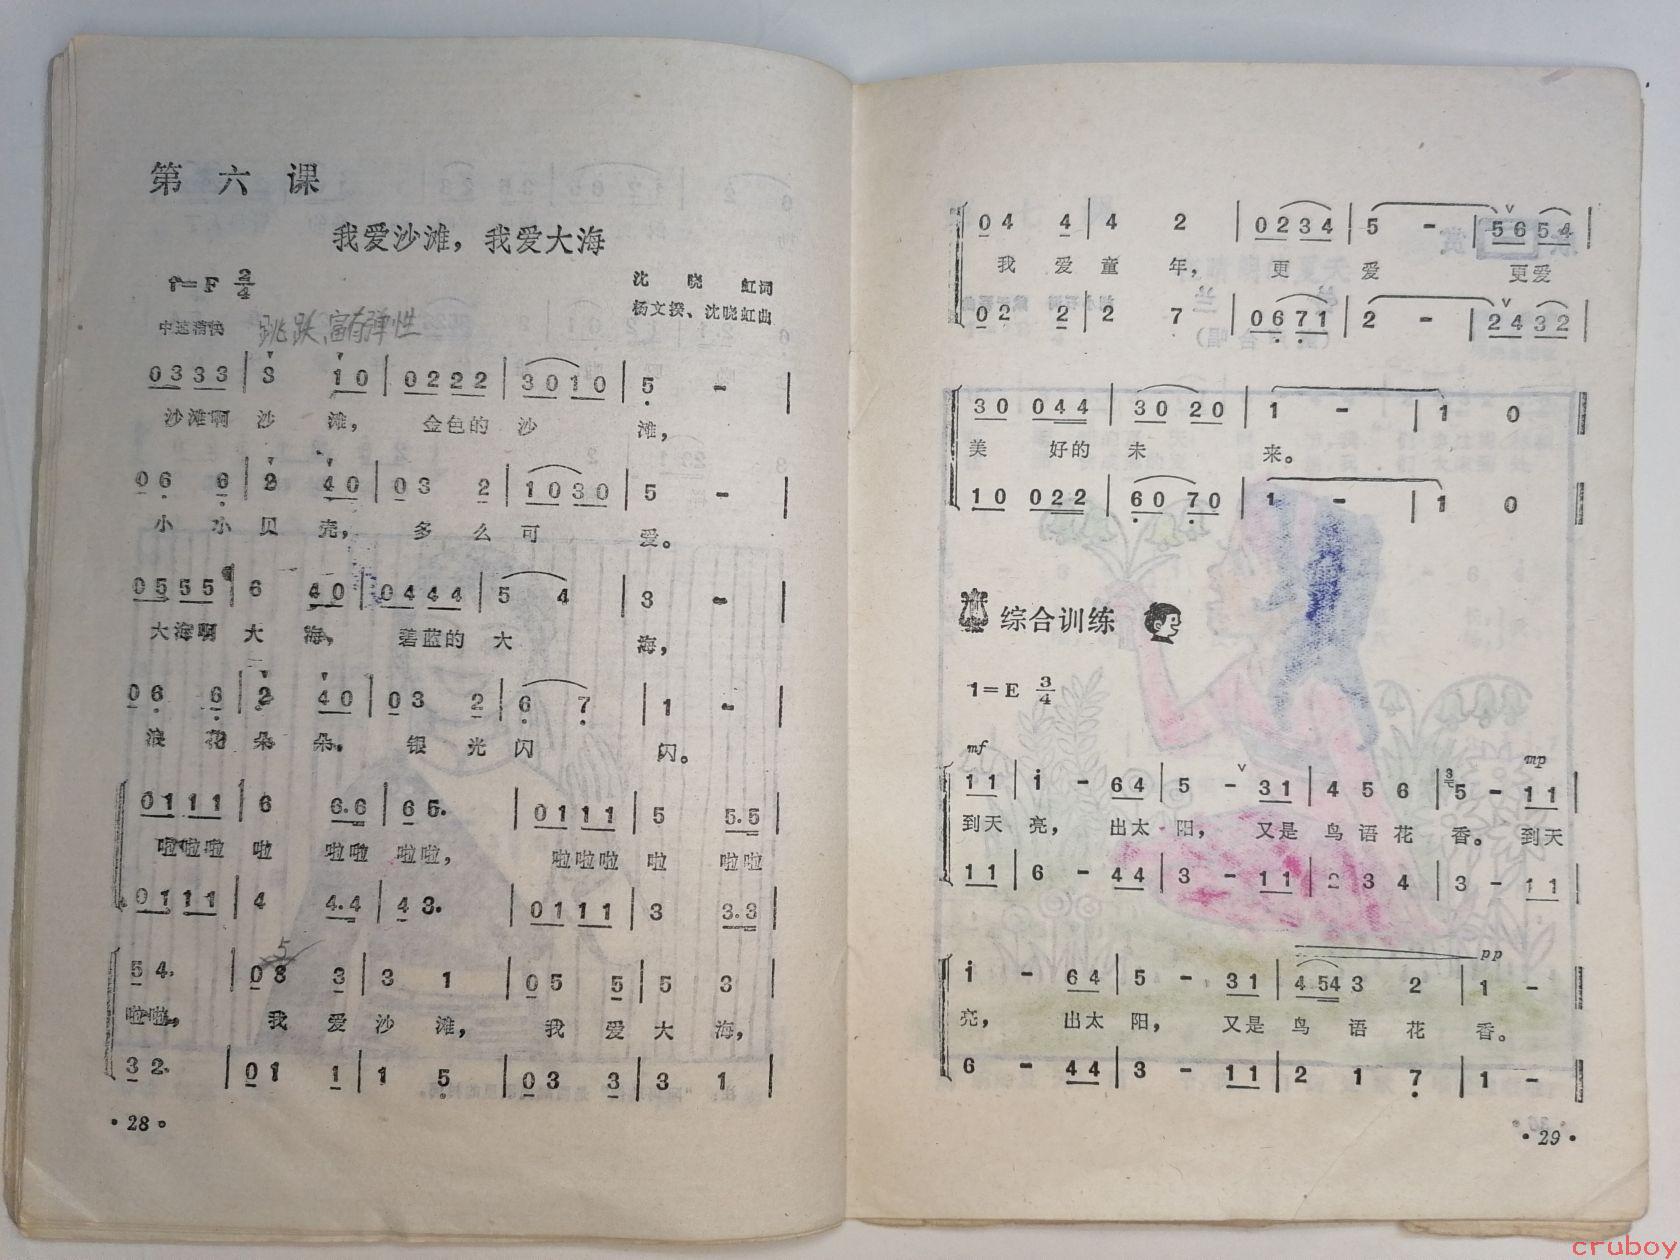 第六课
我爱沙滩，我爱大海
1=F 2/4
沈晓虹词
杨文揆、沈晓虹曲
中速稍快 跳跃、富有弹性
0333 | 3 10 | 0222 | 3010 | 5 - |
沙滩啊 沙 滩， 金色的 沙 滩，
06 6 | 2 40 | 03 2 | 1030 | 5 - |
小 小 贝 壳， 多 么 可 爱。
0555 | 6 40 | 0444 | 5 4 | 3 - |
大海啊 大 海， 碧蓝的 大 海，
06 6 | 2 40 | 03 2 | 6 7 | 1 - |
浪 花 朵 朵， 银 光 闪 闪。
0111 | 6 6.6 | 65. | 0111 | 5 5.5 |
啦啦啦 啦 啦啦 啦啦， 啦啦啦 啦 啦啦
0111 | 4 4.4 | 43. | 0111 | 3 3.3 |
5
54. | 03 3 | 3 1 | 05 5 | 5 3 |
啦啦， 我 爱 沙 滩， 我 爱 大 海，
32. | 01 1 | 1 5 | 03 3 | 3 1 |
·28·
04 4 | 4 2 | 0234 | 5 - | 5654 |
我 爱 童 年， 更 爱 更爱
02 2 | 2 7 | 0671 | 2 - | 2432 |
30 044 | 30 20 | 1 - | 1 0
美 好的 未 来。
10 022 | 60 70 | 1 - | 1 0
综合训练
1=E 3/4
mf mp
11 | i - 64 | 5 - 31 | 4 5 6 | 3 5 - 11 |
到天 亮， 出太 阳， 又是 鸟 语 花 香。 到天
11 | 6 - 44 | 3 - 11 | 2 3 4 | 3 - 11 |
pp
i - 64 | 5 - 31 | 454 3 2 | 1 -
亮， 出太 阳， 又是 鸟 语 花 香。
6 - 44 | 3 - 11 | 2 1 7 | 1 -
·29·
cruboy